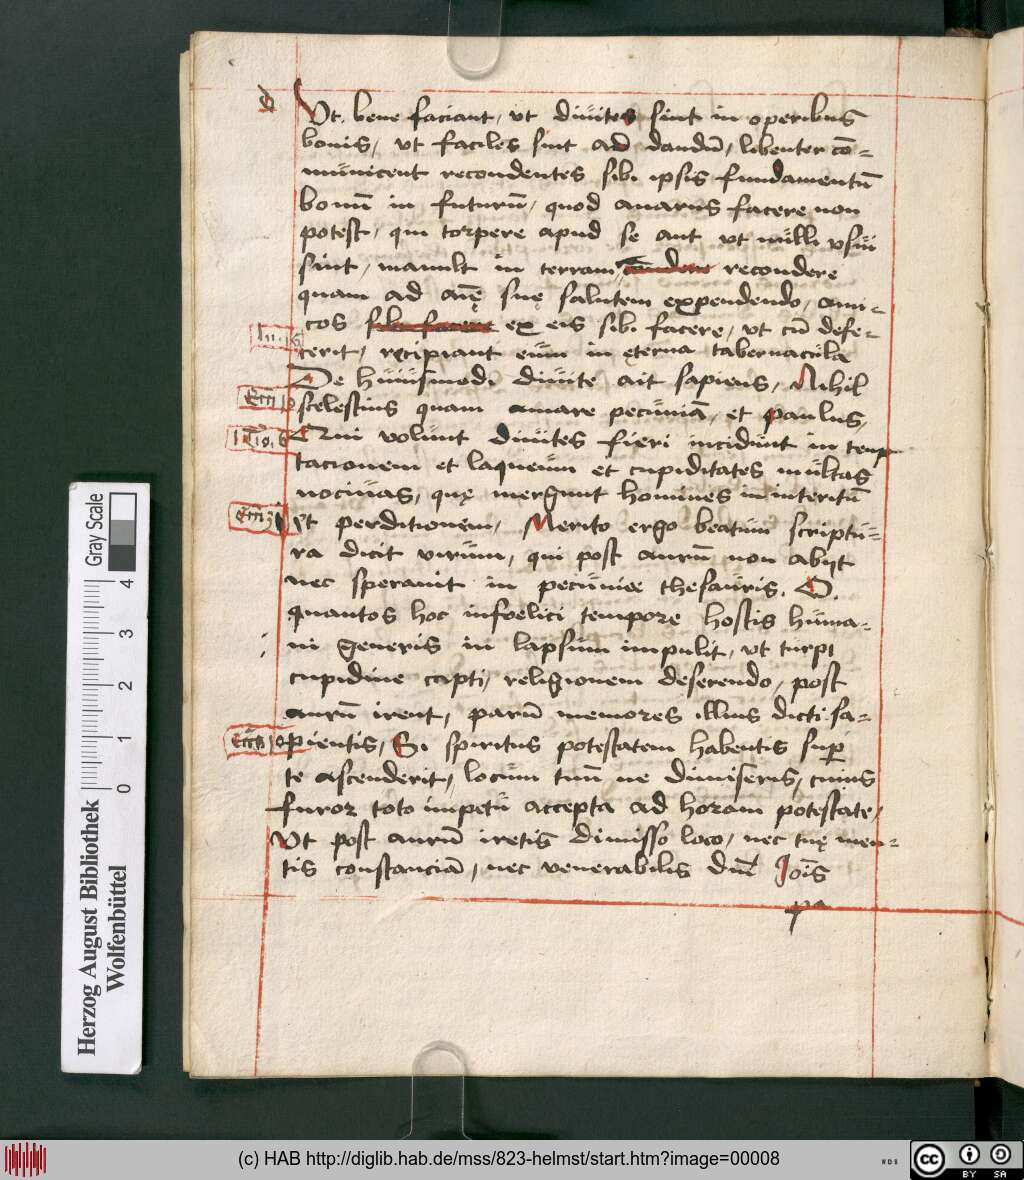 Vt bene faciant, vt diuites sint in operibus
bonis, vt faciles sint ad dandū, libenter cō=
municent recondentes sibi ipsis fundamentū
bonū in futurū, quod auarus facere non
potest, qui torpere apud se aut vt nulli vsui
sint, mauult in terram recondere
quam ad aīę suę salutem expendendo, ami=
cos sibi facere ex eis sibi facere, vt cū defe=
Lu. 16
cerit, recipiant eum in ęterna tabernacula
De huiusmodi diuite ait sapiens, Nihil
Ecci 10
scelestius quam amare pecuniā, et paulus,
1 Tio. 6
Qui volunt diuites fieri incidunt in temp
tacionem et laqueum et cupiditates multas
nociuas, quę mergunt homines in interitū
Ecci 31
et perditionem, Merito ergo beatum scriptu=
ra dicit virum, qui post aurū non abijt
nec sperauit in pecuniee thesauris. O.
quantos hoc infoelici tempore hostis huma=
ni generis in lapsum impulit, vt turpi
cupidine capti, religionem deserendo, post
aurū irent, parū memores illius dicti sa=
Eccs 10
pientis, Si spiritus potestatem habentis sup
te ascenderit, locum tuū ne dimiseris, cuius
furor toto impetū accepta ad horam potestate,
Vt post aurū iretis dimisso loco, nec tuę men=
tis constanciā, nec venerabilis dnī Joīs
pa
Gray Scale
4
3
2
1
0
Herzog August Bibliothek
Wolfenbüttel
(c) HAB http://diglib.hab.de/mss/823-helmst/start.htm?image=00008
WDB
cc
BY SA